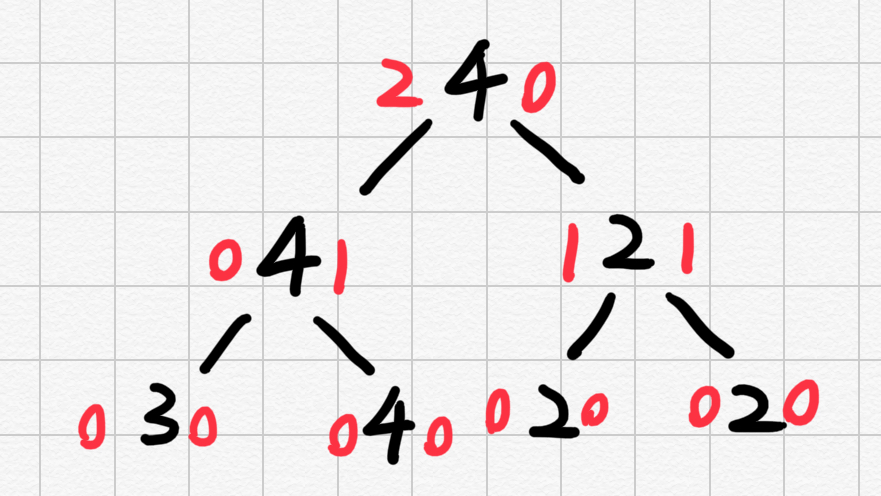 2 4 0
0 4 1 1 2 1
0 3 0 0 4 0 0 2 0 0 2 0